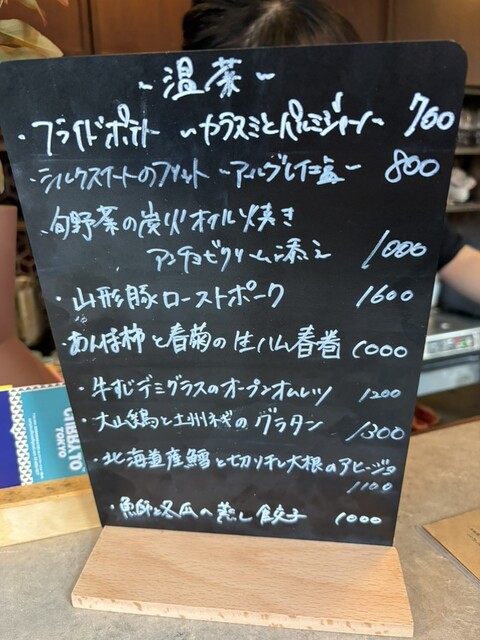 ~温菜~
・フライドポテト ~カラスミとパルミジャーノ~ 700
・シルクスイートのフリット ~アルブレイ塩~ 800
・旬野菜の炭火オイル焼き
アンチョビクリーム添え 1000
・山形豚ローストポーク 1600
・あんぽ柿と春菊の生ハム春巻 1000
・牛すじデミグラスのオープンオムレツ 1200
・大山鶏と九州ネギのグラタン 1300
・北海道産鱈と切り干し大根のアヒージョ
1100
・鰤と冬瓜の蒸し餃子 1000
TOKYO